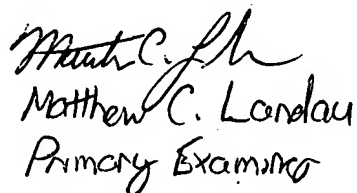 Matthew C. Landau
Primary Examiner